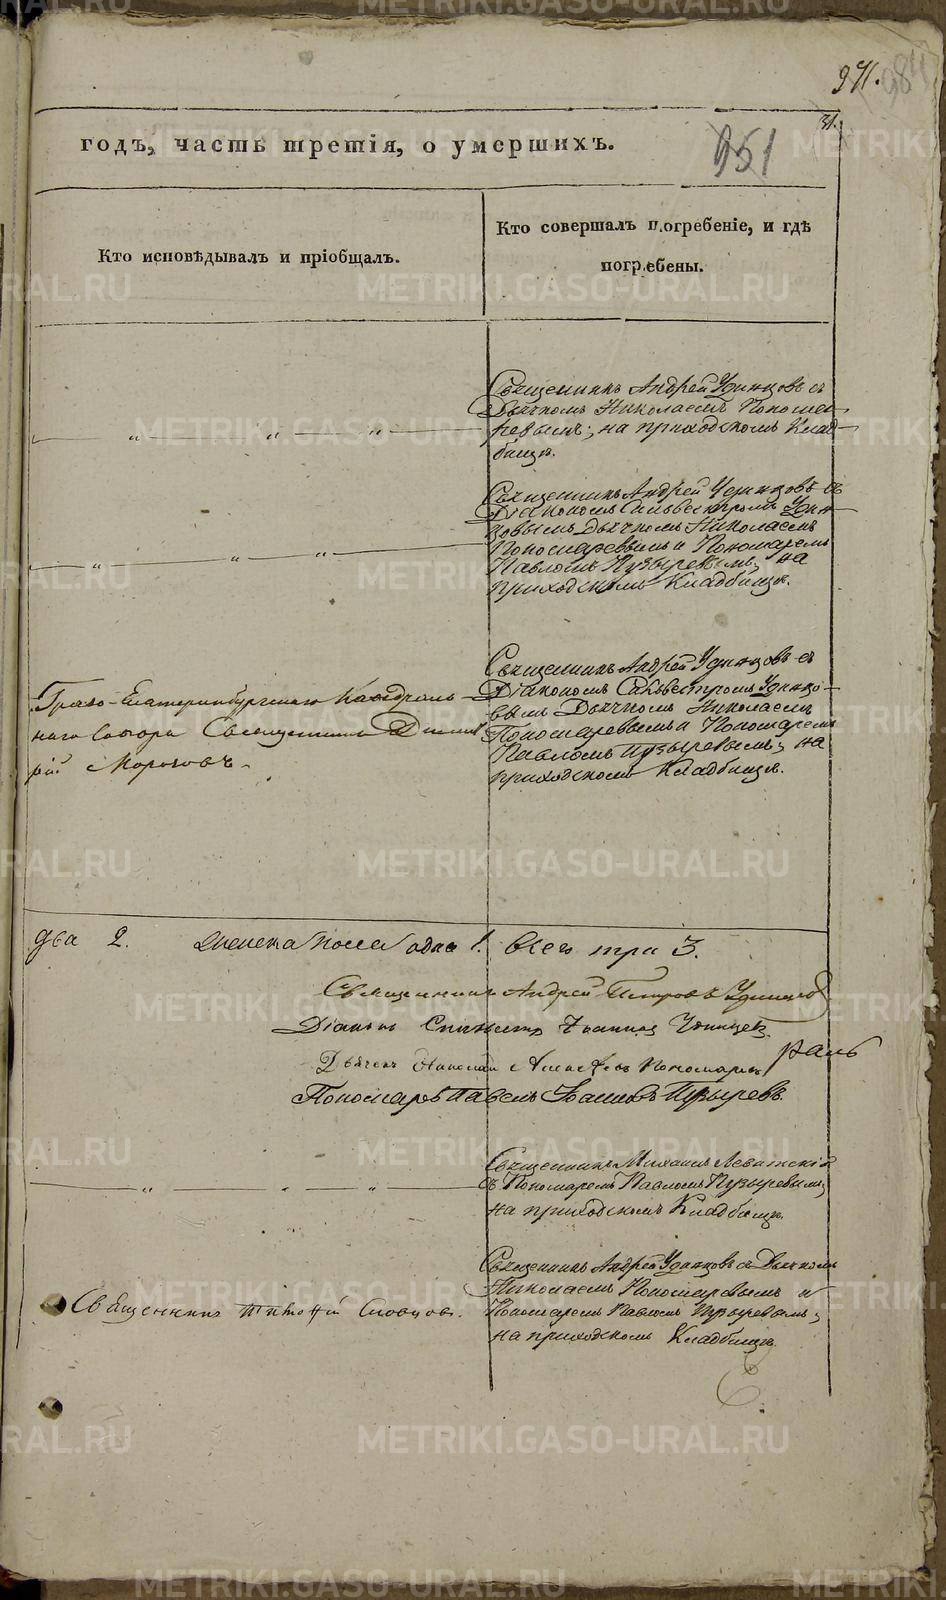 971.
984
31.
951
годъ, часть третія, о умершихъ.
Кто исповѣдывалъ и пріобщалъ.
Кто совершалъ погребеніе, и гдѣ
погребены.
Священникъ Андрей Удинцовъ съ
Дьячкомъ Николаемъ Пономо-
ревымъ; на приходскомъ Клад-
бищѣ.
Священникъ Андрей Удинцовъ съ
Діакономъ Сильвестромъ Удин-
цовымъ Дьячкомъ Николаемъ
Пономаревымъ и Пономаремъ
Павломъ Пузыревымъ; на
приходскомъ Кладбищѣ.
Градо-Екатеринбургскаго Кафедраль-
наго Собора Священникъ Димит
рій Морозовъ.
Священникъ Андрей Удинцовъ съ
Діакономъ Сильвестромъ Удинцо-
вымъ Дьячкомъ Николаемъ
Пономаревымъ и Пономаремъ
Павломъ Пузыревымъ; на
приходскомъ Кладбищѣ.
два 2. женска пола одна 1. всего три 3.
Священникъ Андрей Петровъ Удинцов
Діаконъ Удинцов
Дьячек Николай Пономарев
Пономарь Павелъ Пузыревъ.
Священникъ Михаилъ Левитскій
съ Пономаремъ Павломъ Пузыревымъ;
на приходскомъ Кладбищѣ.
Священникъ Словцов.
Священникъ Андрей Удинцовъ съ Дьячкомъ
Николаемъ Пономаревымъ и
Пономаремъ Павломъ Пузыревымъ;
на приходскомъ Кладбищѣ.
METRIKI.GASO-URAL.RU